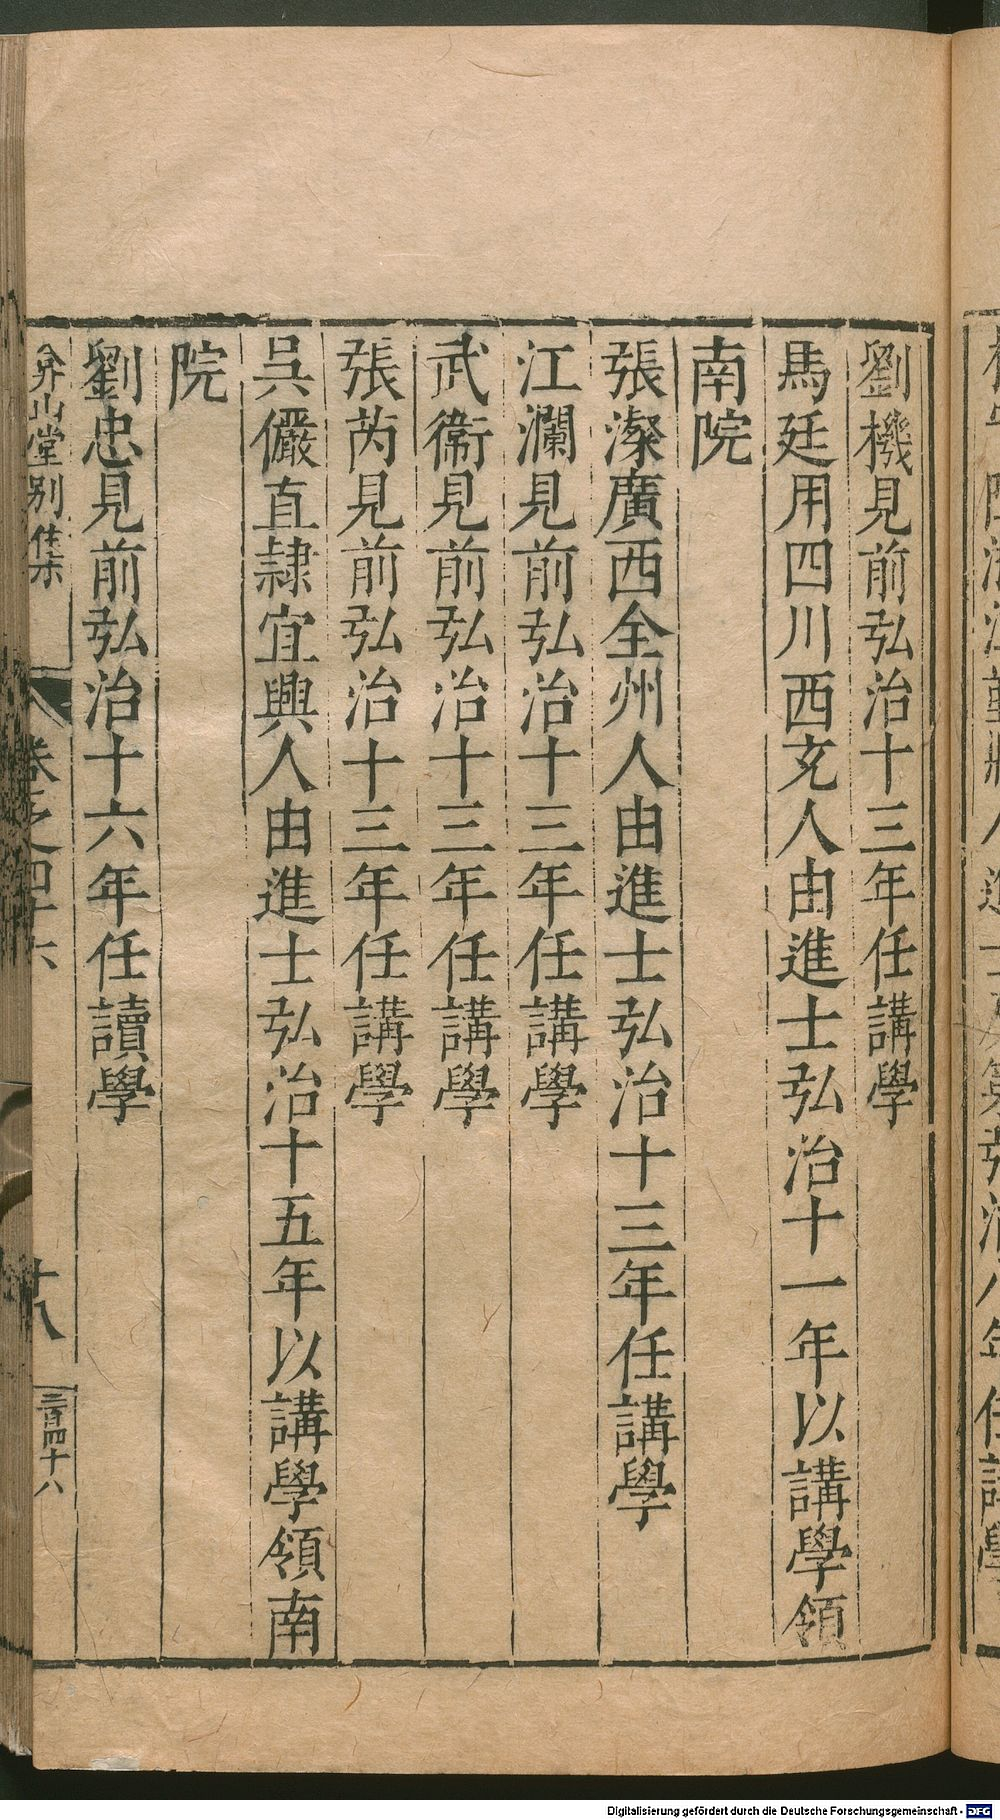 劉機見前弘治十三年任講學
馬廷用四川西充人由進士弘治十一年以講學領
南院
張澯廣西全州人由進士弘治十三年任講學
江瀾見前弘治十三年任講學
武衞見前弘治十三年任講學
張芮見前弘治十三年任講學
吳儼直隷宜興人由進士弘治十五年以講學領南
院
劉忠見前弘治十六年任讀學
弇山堂別集
卷之四十六
十八
三百四十八
Digitalisierung gefördert durch die Deutsche Forschungsgemeinschaft - DFG